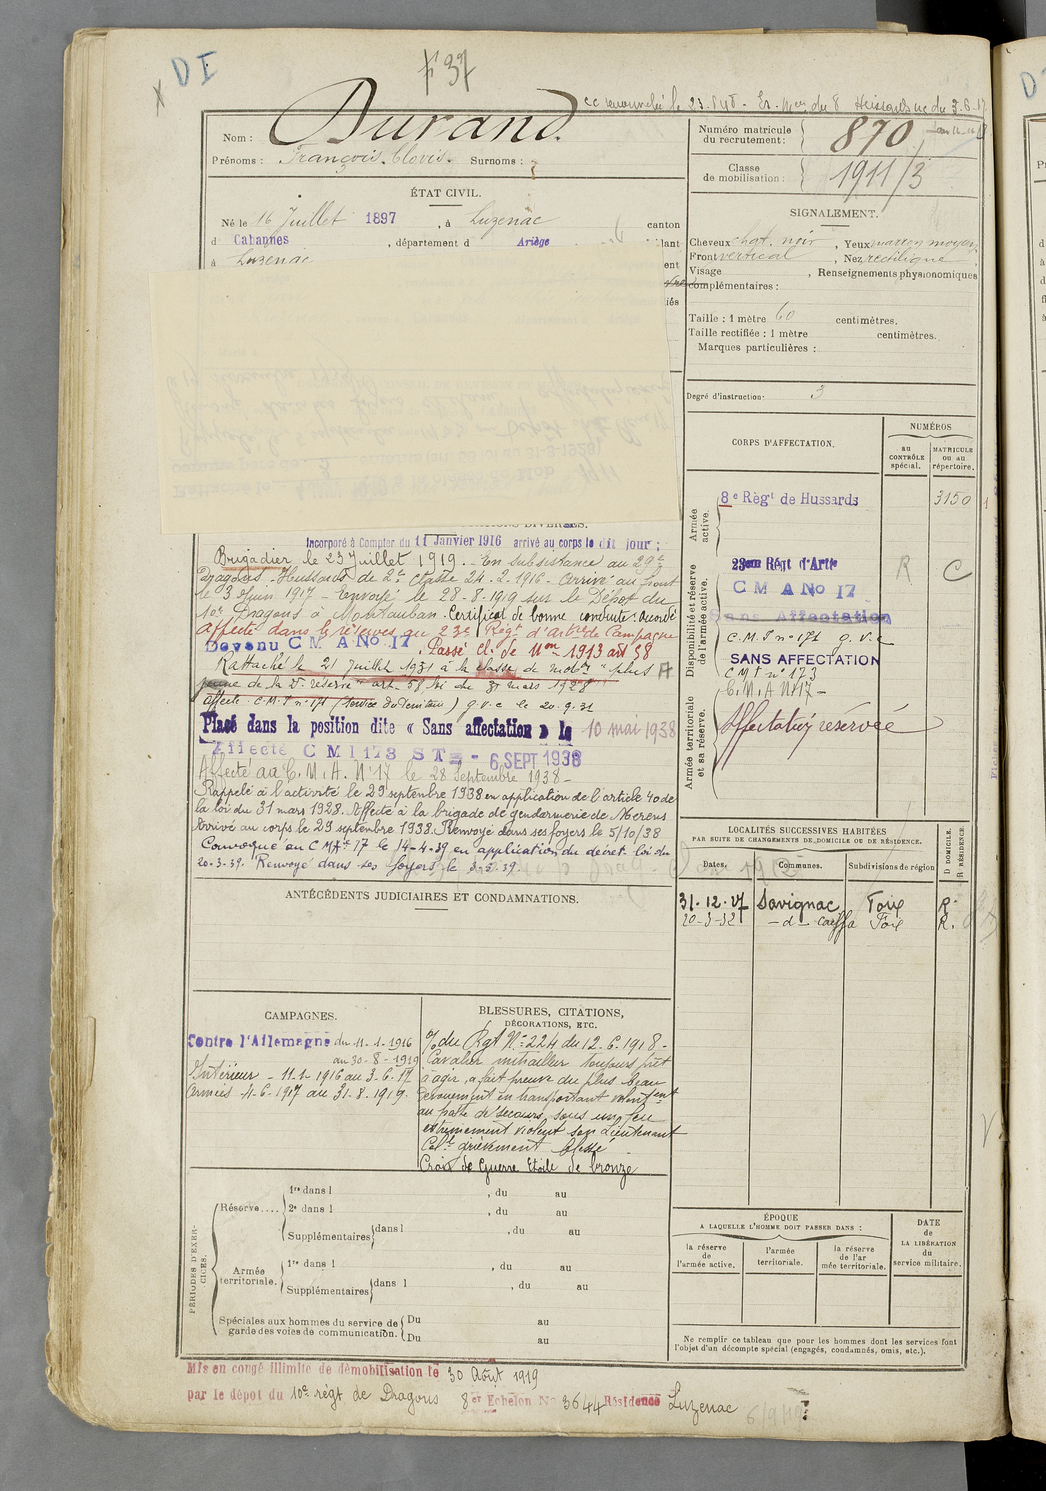 D I
F 37
Nom : Durand
Prénoms : François. Clovis. Surnoms :
Numéro matricule du recrutement : 870
Classe de mobilisation : 1911/3
ÉTAT CIVIL.
Né le 16 Juillet 1897, à Luzenac canton
d Cabannes, département d Ariège
à Luzenac
SIGNALEMENT.
Cheveux chat. noir, Yeux marron moyen
Front vertical, Nez rectiligne
Visage , Renseignements physionomiques
complémentaires :
Taille : 1 mètre 60 centimètres.
Taille rectifiée : 1 mètre centimètres.
Marques particulières :
Degré d'instruction : 3
CORPS D'AFFECTATION.
NUMÉROS
au CONTRÔLE spécial.
MATRICULE ou au répertoire.
Armée active.
8e Régt de Hussards 3150
Disponibilité et réserve de l'armée active.
23eme Régt d'Artie R C
C M A No 17
Sans Affectation
C.M.I n° 171 g.v.c
SANS AFFECTATION
CMI n° 173
C.M.A N°17 -
Armée territoriale et sa réserve.
Affectation réservée
Incorporé à Compter du 11 Janvier 1916 arrivé au corps le dit jour ;
Brigadier le 23 Juillet 1919. En subsistance au 29e
Dragons. Hussard de 2e classe 24-2-1916. Arrivé au front
le 3 Juin 1917 - Renvoyé le 28-8-1919 sur le Dépot du
10e Dragons à Montauban. Certificat de bonne conduite : accordé
Affecté dans la réserve au 23e Regt d'Artrie de Campagne
Devenu C M A No 17. Passé Cl. de Mon 1913 art 58
Rattaché le 21 Juillet 1931 à la classe de mobon "plus
jeune de la 2e réserve" art. 58 loi du 31 mars 1928
affecté C.M.I n° 171 (Service du Territoire) g.v.c le 20.9.31
Placé dans la position dite « Sans affectation » le 10 mai 1938
Affecté C M I 173 S T - 6 SEPT 1938
Affecté au C.M.A. N°17 le 28 Septembre 1938 -
Rappelé à l'activité le 29 septembre 1938 en application de l'article 40 de
la loi du 31 mars 1928. Affecté à la brigade de gendarmerie de Merens
Arrivé au corps le 29 septembre 1938. Renvoyé dans ses foyers le 5/10/38
Convoqué au C MA n° 17 le 14-4-39 en application du décret loi du
20-3-39. Renvoyé dans ses foyers le 3-5-39.
ANTÉCÉDENTS JUDICIAIRES ET CONDAMNATIONS.
LOCALITÉS SUCCESSIVES HABITÉES
PAR SUITE DE CHANGEMENTS DE DOMICILE OU DE RÉSIDENCE.
Dates. Communes. Subdivisions de région D DOMICILE. R RÉSIDENCE.
31-12-27 Savignac Foix R.
20-3-32 -d- Foix R.
CAMPAGNES.
Contre l'Allemagne du 11-1-1916
au 30-8-1919
Intérieur - 11-1-1916 au 3-6-17
Armées 4-6-1917 au 31-8-1919.
BLESSURES, CITATIONS,
DÉCORATIONS, ETC.
O/ du Rgt N° 224 du 12-6-1918 -
Cavalier mitrailleur toujours prêt
à agir, a fait preuve du plus beau
dévouement en transportant volontent
au poste de secours, sous un feu
extrêmement violent son Lieutenant
grièvement blessé.
Croix de Guerre Etoile de bronze
PÉRIODES D'EXERCICES.
Réserve.... 1re dans l , du au
2e dans l , du au
Supplémentaires dans l , du au
Armée territoriale. 1re dans l , du au
Supplémentaires dans l , du au
Spéciales aux hommes du service de garde des voies de communication. Du au
Du au
ÉPOQUE
A LAQUELLE L'HOMME DOIT PASSER DANS :
la réserve de l'armée active.
l'armée territoriale.
la réserve de l'armée territoriale.
DATE de LA LIBÉRATION du service militaire.
Ne remplir ce tableau que pour les hommes dont les services font
l'objet d'un décompte spécial (engagés, condamnés, omis, etc.).
Mis en congé illimité de démobilisation le 30 Août 1919
par le dépot du 10e régt de Dragons 8er Echelon No 3644 Résidence Luzenac